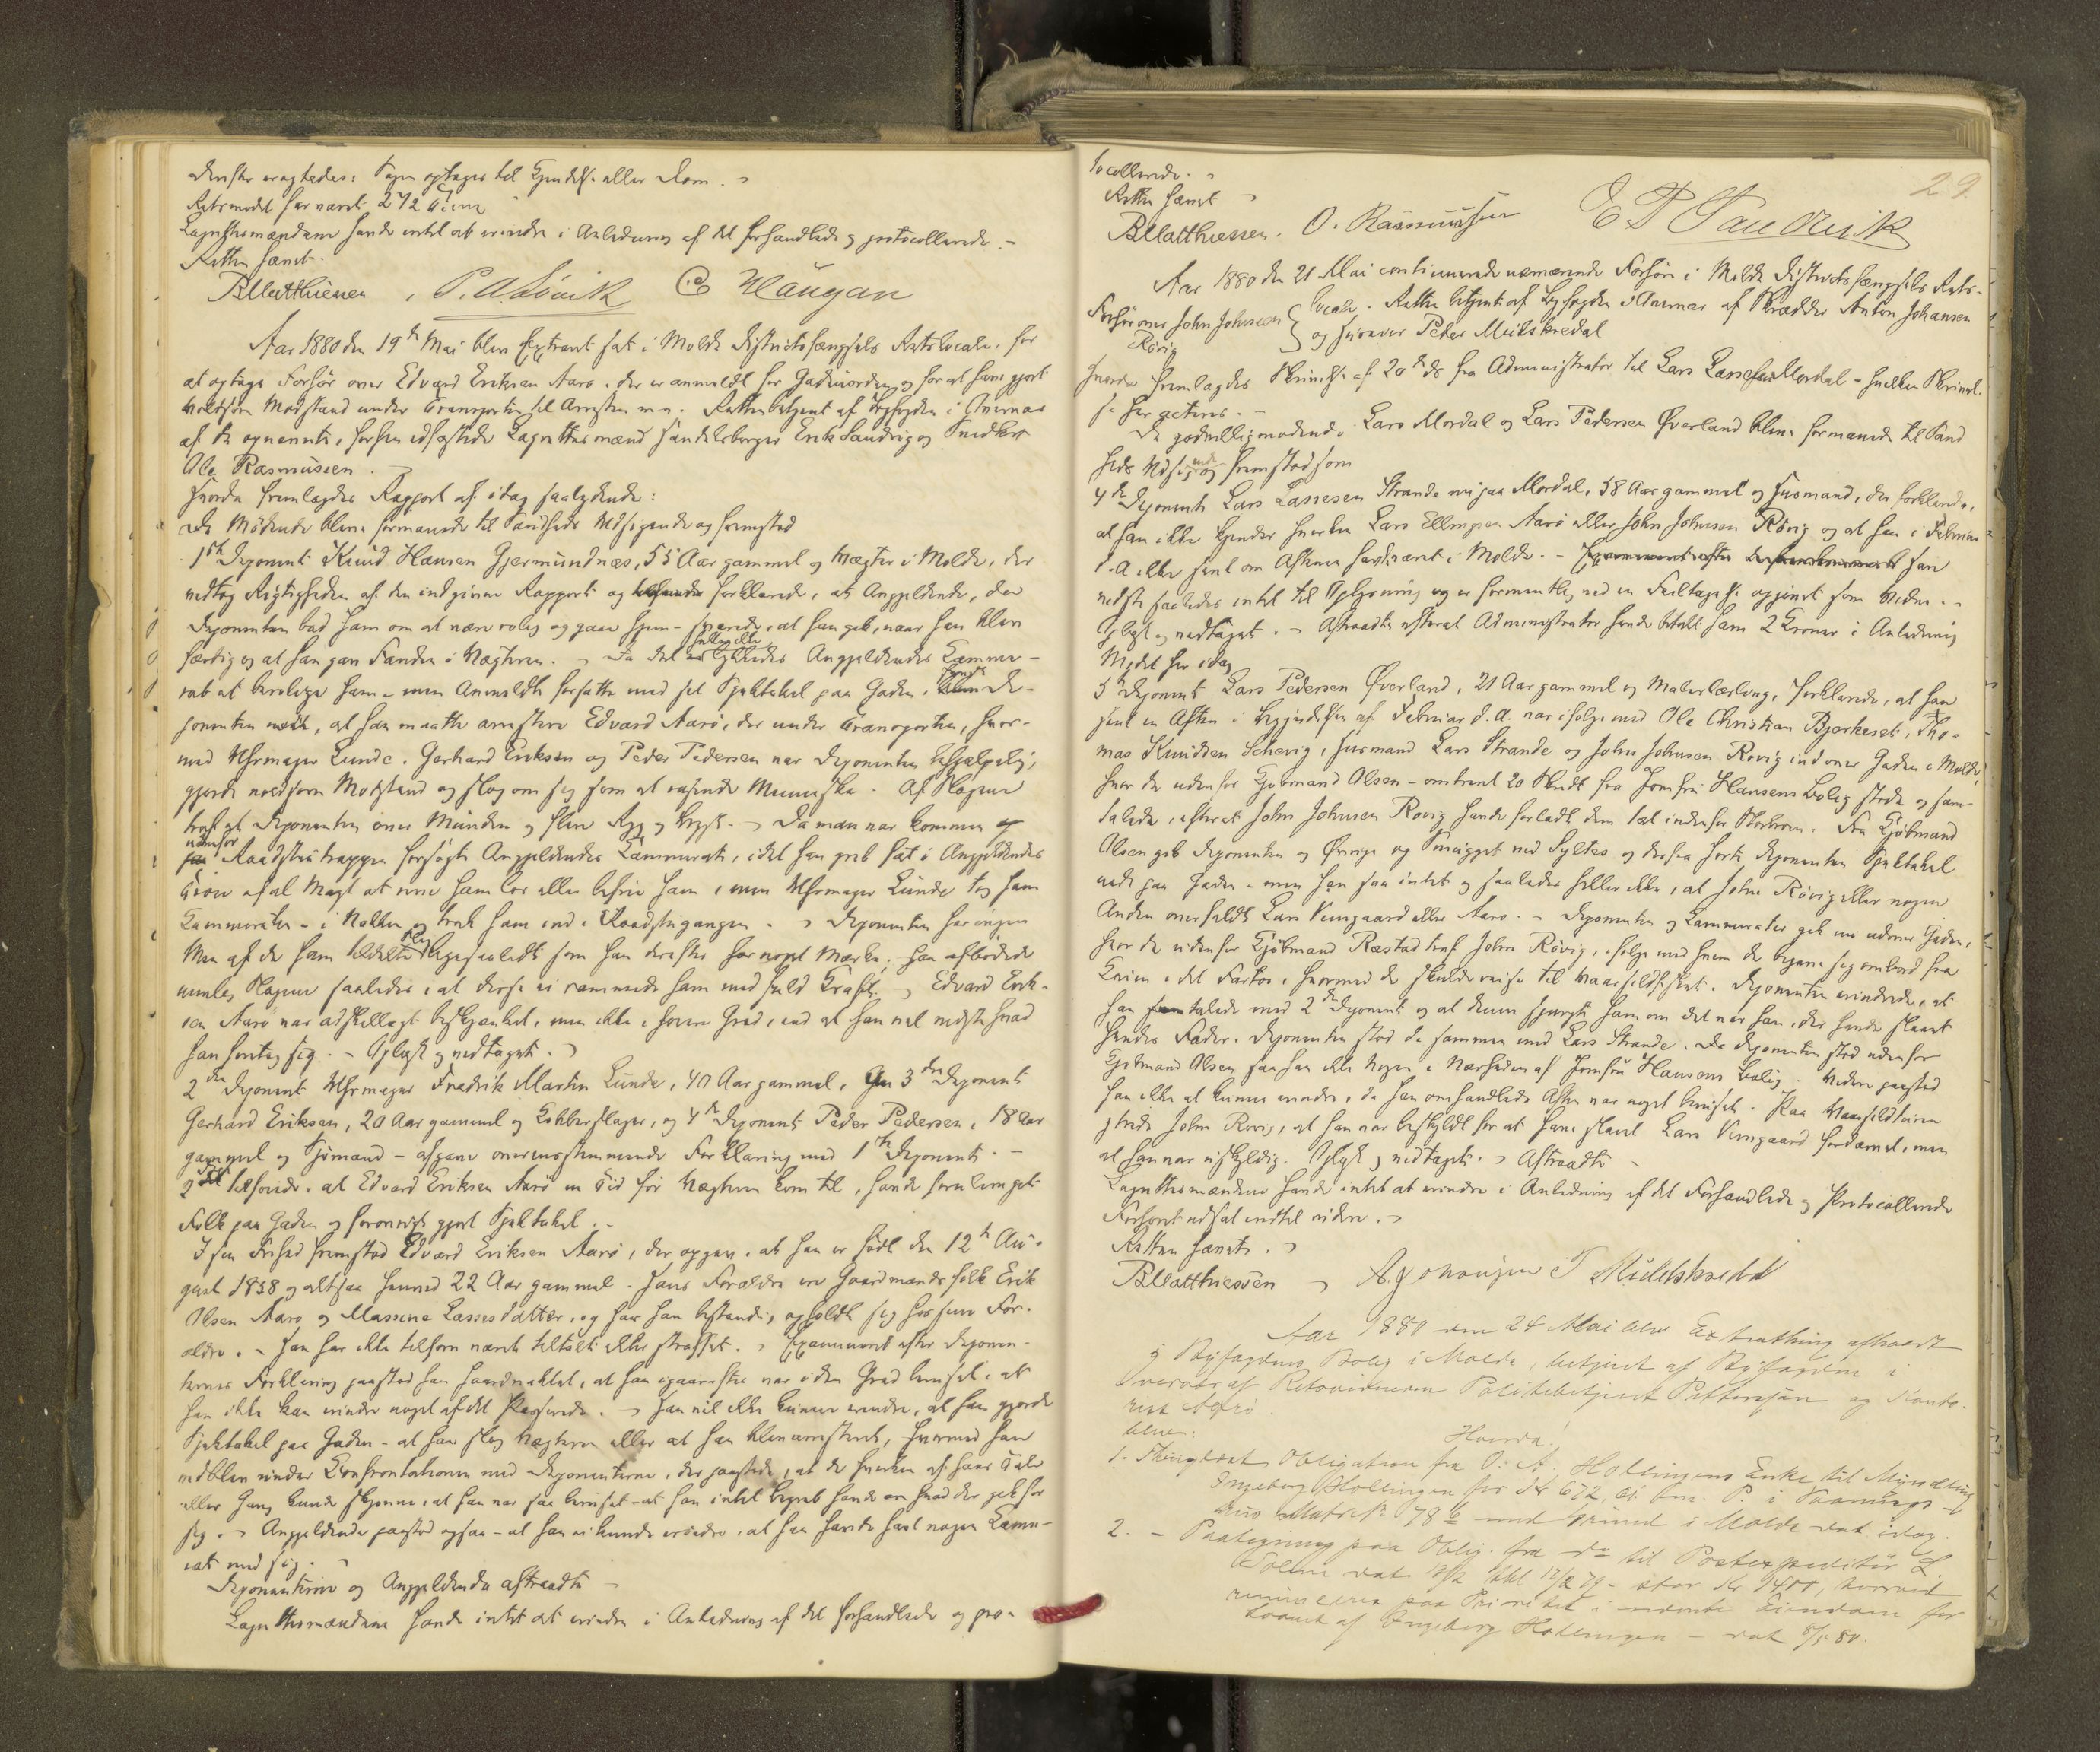 derefter eragtedes: Sagen optages til Kjendelse eller Dom.
Retsmødet har varet 2 1/2 Time
Lagrettesmændene havde intet at erindre i Anledning af det forhandlede og protocollerede. -
Retten hævet.
BMatthiessen, P. A. Løvik C Haugan
Aar 1880 den 19de Mai blev Extraret sat i Molde Districtsfængsels Retslocale, for
at optage Forhør over Edvard Eriksen Aarø, der er anmeldt for Gadeuorden og for at have gjort
voldsom Modstand under Transporten til Arresten m. v. Retten betjent af Byfogden i Nærvær
af de opnævnte, forhen edfæstede Lagrettesmænd Handelsborger Erik Sandvig og Snedker
Ole Rasmussen. -
Hvorda fremlagdes Rapport af idag saalydende:
De Mødende bleve formanede til Sandheds Udsigende og fremstod
1ste Deponent Knud Hansen Gjermundnæs, 55 Aar gammel og Vægter i Molde, der
vedtog Rigtigheden af den indgivne Rapport og forklarede, at Angjeldende, da
Deponenten bad ham om at være rolig og gaae hjem - svarede, at han gik, naar han blev
færdig og at han gav Fanden i Vægteren. - Da det heller ikke lykkedes Angjeldendes Kamme-
rat at berolige ham - men Anmeldte forsatte med sit Spektakel paa Gaden, fandt De-
ponenten, at han maatte arrestere Edvard Aarø, der under Transporten, hvor-
ved Uhrmager Lunde, Gerhard Eriksen og Peder Pedersen var Deponenten behjælpelig,
gjorde voldsom Modstand og slog om sig som et rasende Menneske. Af Slagene
traf et Deponenten over Munden og flere Ryg og Bryst. - Da man var kommen op
udenfor Raadstuetrappen forsøgte Angjeldendes Kammerat, idet han greb fat i Angjeldendes
Trøie af al Magt at rive ham los eller befrie ham, men Uhrmager Lunde tog ham
Kammeraten - i Nakken og trak ham ind i Raadstugangen. - Deponenten har ingen
Men af de ham tildelte Slag saaledt som han derefter har noget Mærke; han afbødede
nemlig Slagene saaledes, at disse ei rammede ham med fuld Kraft. - Edvard Erik-
sen Aarø var adskilligt beskjænket, men ikke i høiere Grad, end at han vel vidste hvad
han foretog sig. - Oplæst og vedtaget. -
2den Deponent Uhrmager Fredrik Martin Lunde, 40 Aar gammel, 3die Deponent
Gerhard Eriksen, 20 Aar gammel og Kobberslager, og 4de Deponent Peder Pedersen, 18 Aar
gammel og Sjømand - afgave overensstemmende Forklaring med 1ste Deponent. -
2den tilføiede, at Edvard Eriksen Aarø en Tid før Vægteren kom til, havde forulempet
Folk paa Gaden og forøvrigt gjort Spektakel. -
I sin Frihed fremstod Edvard Eriksen Aarø, der opgav, at han er født den 12te Au-
gust 1858 og altsaa henved 22 Aar gammel. Hans Forældre ere Gaardmandsfolk Erik
Olsen Aarø og Massine Lassesdatter, og har han bestandig opholdt sig hos sine For-
ældre. - Han har ikke tilforn været tiltalt eller straffet. - Examineret efter Deponen-
ternes Forklaring paastod han haardnakket, at han igaaraftes var i den Grad beruset, at
han ikke kan erindre noget af det Passerede. - Han vil ikke kunne erindre, at han gjorde
Spektakel paa Gaden - at han slog Vægteren eller at han blev arresteret, hvorved han
vedblev under Confrontationen med Deponenterne, der paastod, at de hverken af hans Tale
eller Gang kunde skjønne, at han var saa beruset - at han intet Begreb havde om hvad der gik for
sig. - Angjeldende paastod ogsaa - at han ei kunde erindre, at han havde havt nogen Kamme-
rat med sig. -
Deponenterne og Angjeldende aftraadte -
Lagrettesmændene havde intet at erindre i Anledning af det forhandlede og pro-
29.
tocollerede. -
Retten hævet -
BMatthiessen. O. Rasmussen E P Sandvik
Aar 1880 den 21 Mai continuerede nærværende Forhør i Molde Districtsfængsels Rets-
Forhør over John Johnsen Røvig
locale. Retten betjent af Byfogden i Nærvær af Skrædder Anton Johansen
og Snedker Peder Mielskredal
Hvorda fremlagdes Skrivelse af 20de ds fra Administrator til Lars Lassesen Mordal - hvilken Skrivel-
se her acteres. -
De godvilligmødende Lars Mordal og Lars Pedersen Øverland bleve formanede til Sand
heds Udsigende og fremstod som
4de Deponent Lars Lassesen Strande nu paa Mordal, 38 Aar gammel og Husmand, der forklarede,
at han ikke kjender hverken Lars Ellingsen Aarø eller John Johnsen Røvig og at han i Februar
d. A. ikke sent om Aftenen havde været i Molde. - han
vidste saaledes intet til Oplysning og er formentlig ved en Feiltagelse opgivet som Vidne. -
Oplæst og vedtaget. - Aftraadte efterat Administrator havde betalt ham 2 Kroner i Anledning
Mødet her idag
5te Deponent Lars Pedersen Øverland, 21 Aar gammel og Malerlærling, forklarede, at han
sent en Aften i Begyndelsen af Februar d. A. var ifølge med Ole Christian Bjerkeset, Tho-
mas Knudsen Schevig, Husmand Lars Strande og John Johnsen Røvig indover Gaden i Molde,
hvor de udenfor Kjøbmand Olsen - omtrent 20 Skridt fra Jomfru Hansens Bolig stode og sam-
talede, efterat John Johnsen Røvig havde forladt dem tæt indenfor Storbroen. Fra Kjøbmand
Olsen gik Deponenten og Øvrige op Smuget ved Syltes og derfra hørte Deponenten Spektakel
nede paa Gaden - men han saa intet og saaledes heller ikke, at John Røvig eller nogen
Anden overfaldt Lars Vemgaard eller Aarø. - Deponenten og Kammerater gik nu udover Gaden,
hvor de udenfor Kjøbmand Ræstad traf John Røvig, i Følge med hvem de begave sig ombord fra
Kaien i det Fartøi, hvormed de skulde reise til Vaarsildfisket. Deponenten erindrede, at
han talede med 2den Deponent og at denne spurgte ham om det var ham, der havde slaaet
hendes Fader. Deponenten stod da sammen med Lars Strande. Da Deponenten stod udenfor
Kjøbmand Olsen saa han ikke Nogen i Nærheden af Jomfru Hansens Bolig. Videre paastod
han ikke at kunne erindre, da han omhandlede Aften var noget beruset. Paa Vaarsildturen
gjorde John Røvig, at han var beskyldt for at have slaaet Lars Vemgaard fordærvet, men
at han var uskyldig. Oplæst og vedtaget. - Aftraadte -
Lagrettesmændene havde intet at erindre i Anledning af det Forhandlede og Protocollerede
Forhøret udsat indtil videre. -
Retten hævet. -
BMatthiessen, A. Johansen P Mielskredal
Aar 1880 den 24 Mai blev Extrathing afholdt
i Byfogdens Bolig i Molde, betjent af Byfogden i
Nærvær af Retsvidnerne Politibetjent Pettersen og Konto-
rist Aarø.
blev:
Hvorda:
1. - Thinglæst Obligation fra O. A. Hollingens Enke til Myndling
Ingeborg Hollingen for Kr 672, 61 P. i Vaanings-
hus Matr. № 78 b med Grund i Molde dat idag.
2. - Paategning paa Oblig. fra do til Postexpeditør L.
dat thl 17/2 79 - stor Kr 1400, hvorved
paa Prioritet i nævnte Eiendom for
af Ingeborg Hollingen - dat 8/5 80.